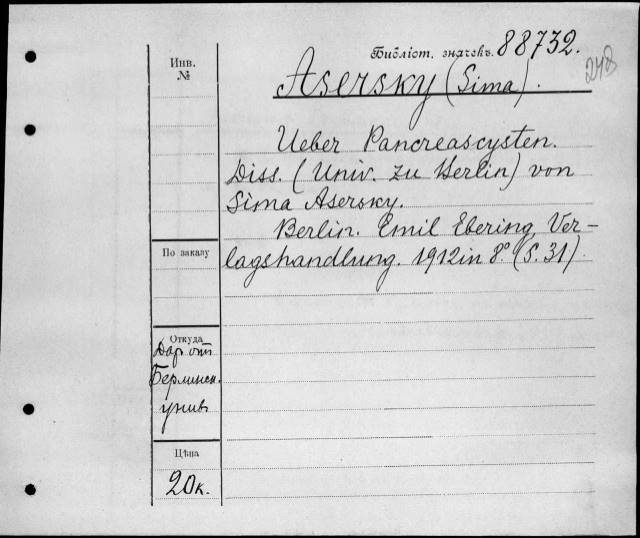 Библіот. значекъ. 88732.
248
Инв.
№
Asersky (Sima).
Ueber Pancreascysten.
Diss. (Univ. zu Berlin) von
Sima Asersky.
Berlin. Emil Ebering, Ver-
lagshandlung. 1912 in 8° (S. 31).
По заказу
Откуда
Дар от
Берлинск.
унив
Цѣна
20к.